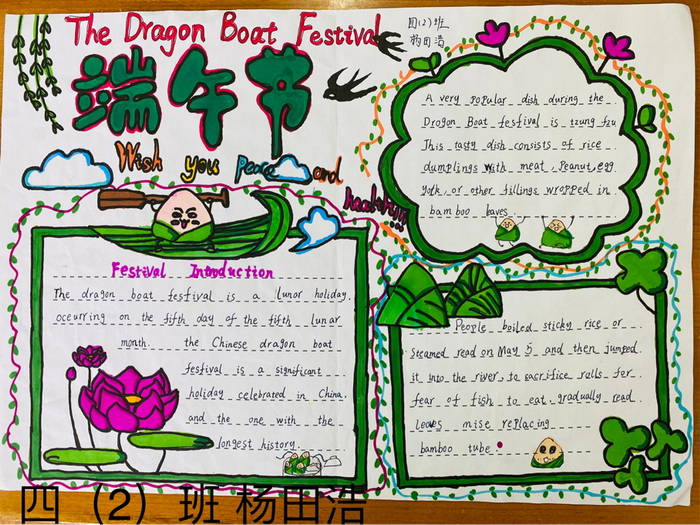 The Dragon Boat Festival
四(2)班
杨田浩
端午节
Wish you peace and
A very popular dish during the
Dragon Boat festival is tzung tzu
This tasty dish consists of rice
dumplings with meat, Peanut, egg
York, or other fillings wropped in
bamboo leaves.
Festival Introduction
The dragon boat festival is a lunor holiday.
oceurring on the fifth day of the fifth lunar
month. the Chinese dragon boat
festival is a significant
holiday celebrated in China.
and the one with the
longest history.
People boiled sticky rice or
Steamed read on May 5 and then jumped
it into the river, to sacrifice rolls for
fear of fish to eat, gradually read
leaves mise replacing
bamboo tube.
四（2）班 杨田浩